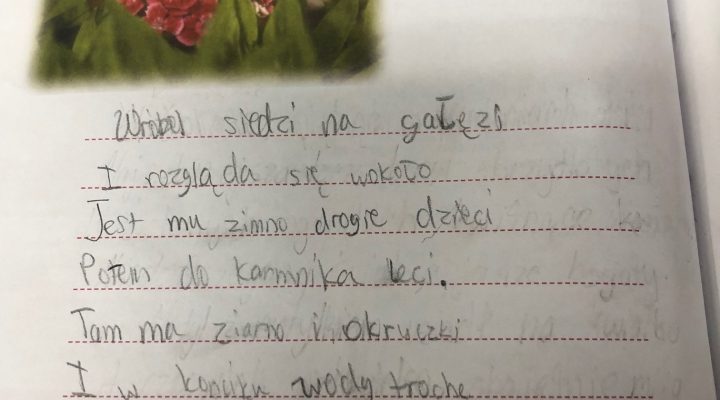 Wróbel siedzi na gałęzi
I rozgląda się wokoło
Jest mu zimno drogie dzieci
Potem do karmnika leci.
Tam ma ziarno i okruszki
I w kąciku wody trochę